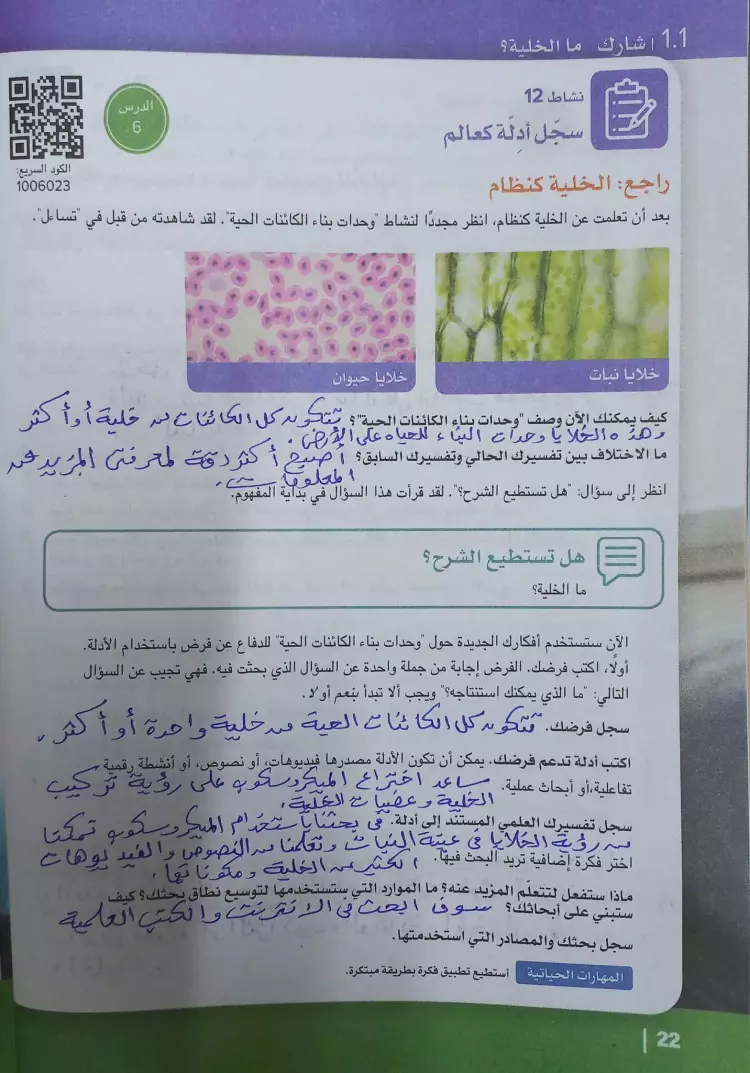 1.1 | شارك ما الخلية؟
نشاط 12
سجّل أدلّة كعالم
الدرس
6
الكود السريع:
1006023
راجع: الخلية كنظام
بعد أن تعلمت عن الخلية كنظام، انظر مجددًا لنشاط "وحدات بناء الكائنات الحية". لقد شاهدته من قبل في "تساءل".
خلايا نبات
خلايا حيوان
كيف يمكنك الآن وصف "وحدات بناء الكائنات الحية"؟ تتكون كل الكائنات من خلية أو أكثر
وهذه الخلايا وحدات البناء للحياه على الأرض.
ما الاختلاف بين تفسيرك الحالي وتفسيرك السابق؟ أصبح أكثر دقة لمعرفتى المزيد من
المعلومات.
انظر إلى سؤال: "هل تستطيع الشرح؟". لقد قرأت هذا السؤال في بداية المفهوم.
هل تستطيع الشرح؟
ما الخلية؟
الآن ستستخدم أفكارك الجديدة حول "وحدات بناء الكائنات الحية" للدفاع عن فرض باستخدام الأدلة.
أولًا، اكتب فرضك. الفرض إجابة من جملة واحدة عن السؤال الذي بحثت فيه. فهي تجيب عن السؤال
التالي: "ما الذي يمكنك استنتاجه؟" ويجب ألا تبدأ بنعم أو لا.
سجل فرضك. تتكون كل الكائنات الحية من خلية واحدة أو أكثر.
اكتب أدلة تدعم فرضك. يمكن أن تكون الأدلة مصدرها فيديوهات، أو نصوص، أو أنشطة رقمية
تفاعلية،أو أبحاث عملية. ساعد اختراع الميكروسكوب على رؤية تركيب
الخلية وعضيات الخلية.
سجل تفسيرك العلمي المستند إلى أدلة. فى بحثنا باستخدام الميكروسكوب تمكنا
من رؤية الخلايا فى عينة النبات وتعلمنا من النصوص والفيديوهات
اختر فكرة إضافية تريد البحث فيها. الكثير عن الخلية ومكوناتها.
ماذا ستفعل لتتعلّم المزيد عنه؟ ما الموارد التي ستستخدمها لتوسيع نطاق بحثك؟ كيف
ستبني على أبحاثك؟ سوف ابحث فى الانترنت والكتب العلمية
سجل بحثك والمصادر التي استخدمتها.
المهارات الحياتية أستطيع تطبيق فكرة بطريقة مبتكرة.
22